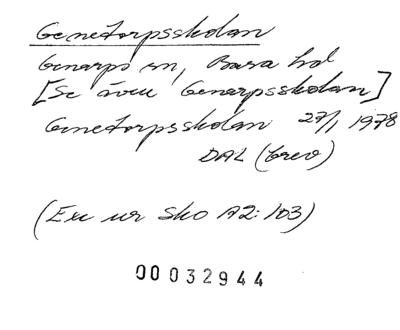 Genetorpsskolan
Genarps sn, Bara hd
[Se även Genarpsskolan]
Genetorpsskolan 27/1 1978
DAL (brev)
(Exc ur Sko A2:103)
00032944